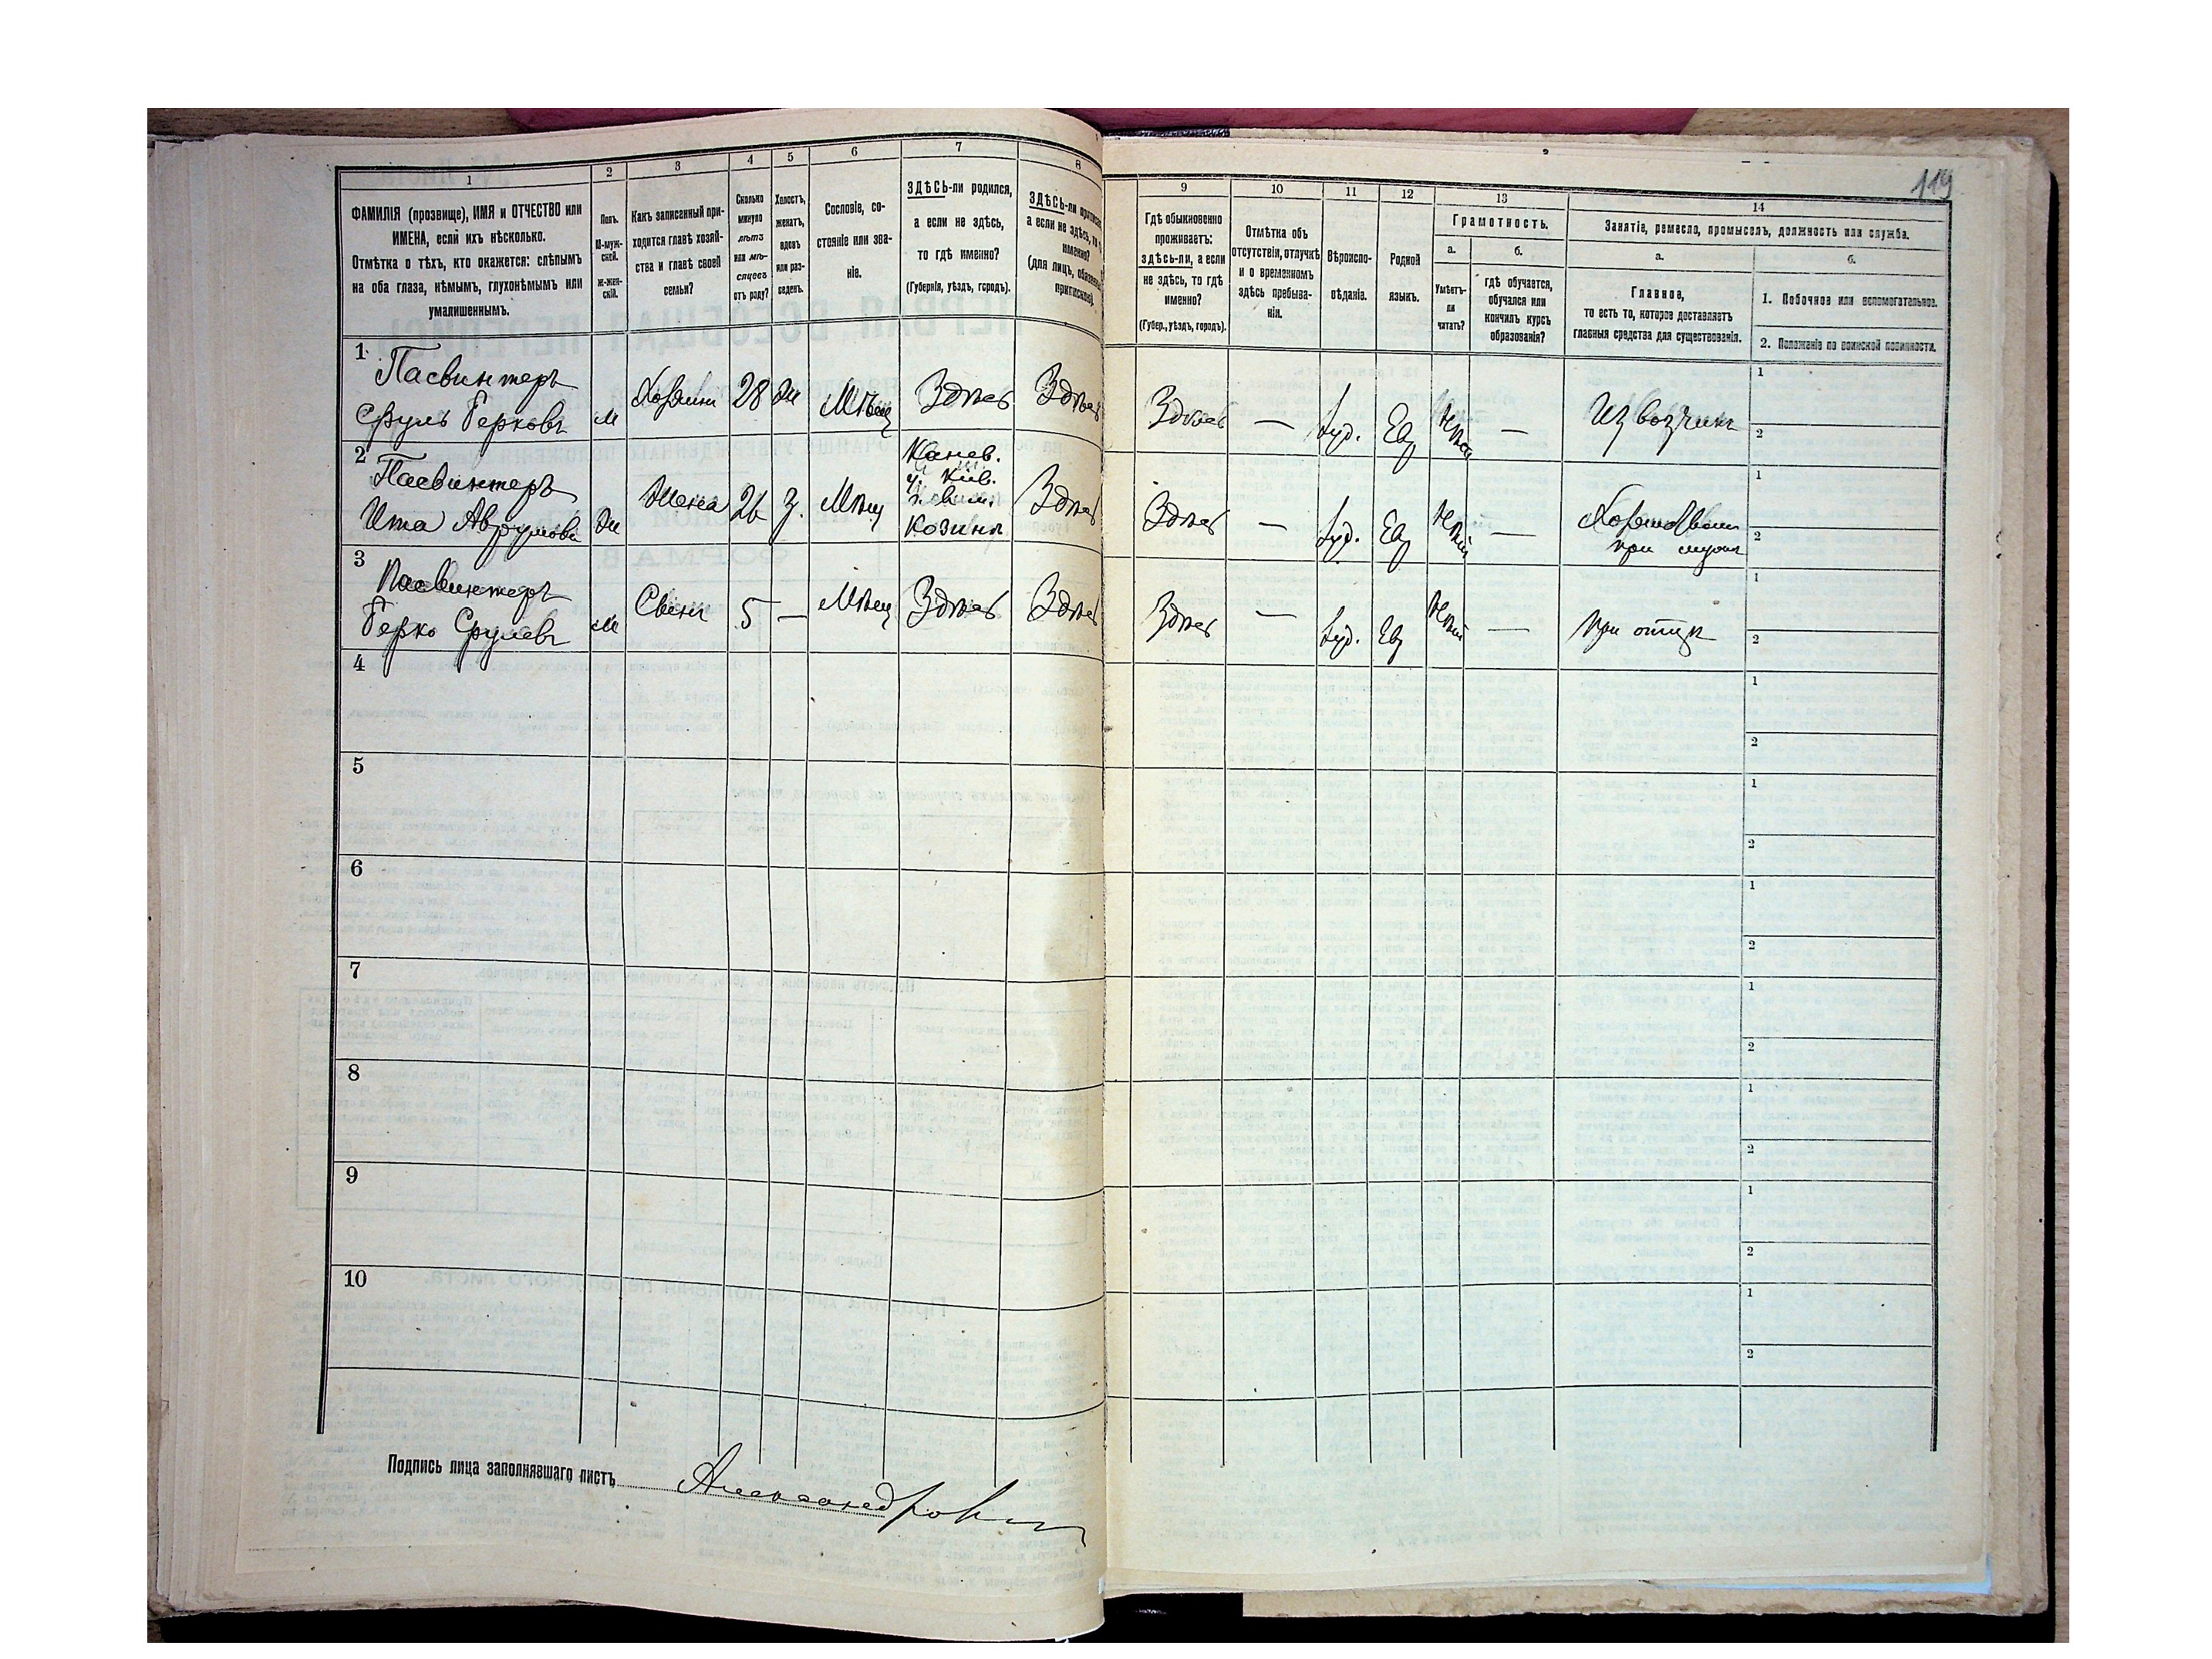 119
1
2
3
4
5
6
7
8
ФАМИЛІЯ (прозвище), ИМЯ и ОТЧЕСТВО или
ИМЕНА, если ихъ нѣсколько.
Отмѣтка о тѣхъ, кто окажется: слѣпымъ
на оба глаза, нѣмымъ, глухонѣмымъ или
умалишеннымъ.
Полъ.
М-муж-
ской.
ж-жен-
скій.
Какъ записанный при-
ходится главѣ хозяй-
ства и главѣ своей
семьи?
Сколько
минуло
лѣтъ
или мѣ-
сяцевъ
отъ роду?
Холостъ,
женатъ,
вдовъ
или раз-
веденъ.
Сословіе, со-
стояніе или зва-
ніе.
ЗДѢСЬ-ли родился,
а если не здѣсь,
то гдѣ именно?
(Губернія, уѣздъ, городъ).
ЗДѢСЬ-ли
а если не здѣсь, то
именно?
(для лицъ,
9
10
11
12
13
14
Гдѣ обыкновенно
проживаетъ:
здѣсь-ли, а если
не здѣсь, то гдѣ
именно?
(Губер., уѣздъ, городъ).
Отмѣтка объ
отсутствіи, отлучкѣ
и о временномъ
здѣсь пребыва-
ніи.
Вѣроиспо-
вѣданіе.
Родной
языкъ.
Грамотность.
а.
б.
Умѣетъ-
ли
читать?
гдѣ обучается,
обучался или
кончилъ курсъ
образованія?
Занятіе, ремесло, промыселъ, должность или служба.
а.
б.
Главное,
то есть то, которое доставляетъ
главныя средства для существованія.
1. Побочное или вспомогательное.
2. Положеніе по воинской повинности.
1
Пасвинтеръ
Сруль Берковъ м Хозяинъ 28 ж Мѣщ Здѣсь Здѣсь Здѣсь — Iуд. Ев Извозчикъ
1
2
2
Пасвинтеръ
Ита Аврумова ж Жена 26 з. Мѣщ
Канев.
у. Кіев.
г. в м.
Козинѣ
Здѣсь Здѣсь — Iуд. Ев —
при мужѣ
1
2
3
Пасвинтеръ
Берко Срулевъ м Сынъ 5 — Мѣщ Здѣсь Здѣсь Здѣсь — Iуд. Ев — при отцѣ
1
2
4
1
2
5
1
2
6
1
2
7
1
2
8
1
2
9
1
2
10
1
2
Подпись лица заполнявшаго листъ